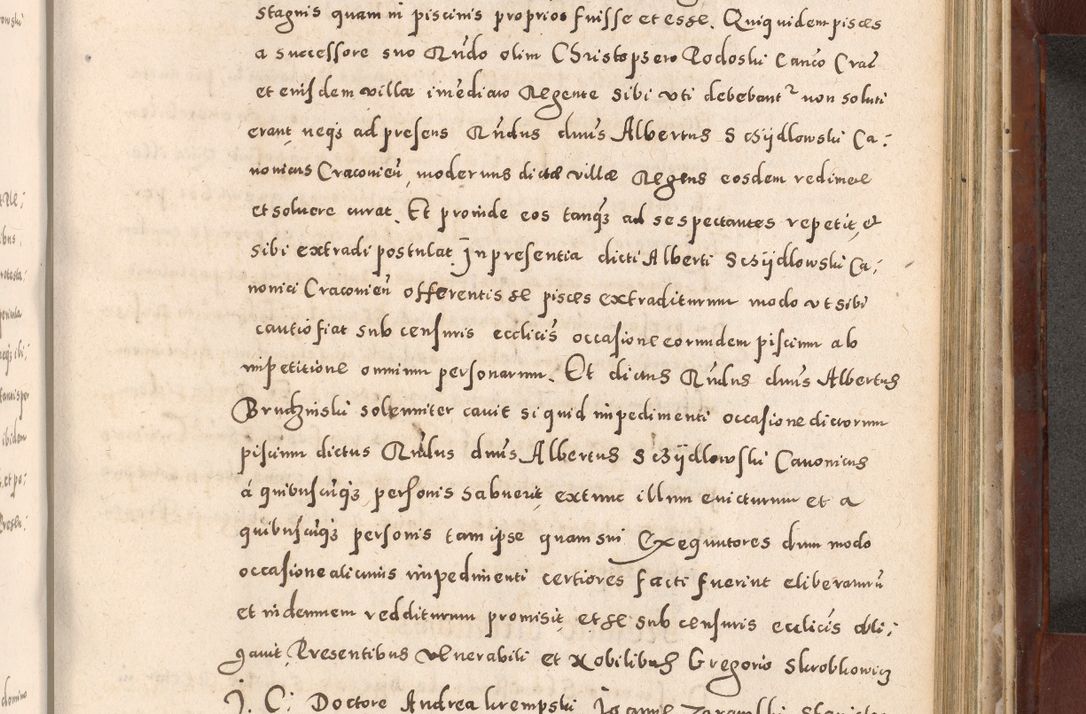 stagnis quam in piscinis proprios fuisse et esse. Quiquidem pisces
a successore suo Rndo olim Christophero Rodoski Canco Crac
et eiusdem villæ imediato Regente sibi uti debebantr non soluti
erant neqз ad presens Rndus dnus Albertus Sczydlowski Ca:
nonicus Cracovien, modernus dictæ villæ Regens eosdem redimere
et soluere curat. Et proinde eos tanqз ad se spectantes repetit, et
sibi extradi postulat. In presentia dicti Alberti Sczydlowski Ca:
nonici Cracovien offerentis se pisces extraditurum modo ut sibi
cautio fiat sub censuris ecclicis occasione eorundem piscium ab
impetitione omnium personarum. Et dictus Rndus dnus Albertus
Brudzinski solemniter cavit si quid impedimenti occasione dictorum
piscium dictus Rndus dnus Albertus Sczydlowski Canonicus
á quibuscuqз personis habuerit, extunc illum evicturum et a
quibuscuqз personis tam ipse quam sui Exequutores dummodo
occasione alicuius impedimenti certiores facti fuerint eliberaturu
et indemnem redditurum promisit, et se sub censuris ecclicis obli:
gavit, Presentibus Venerabili et Nobilibus Gregorio Skrobkowicz
J. C: Doctore Andrea krempski